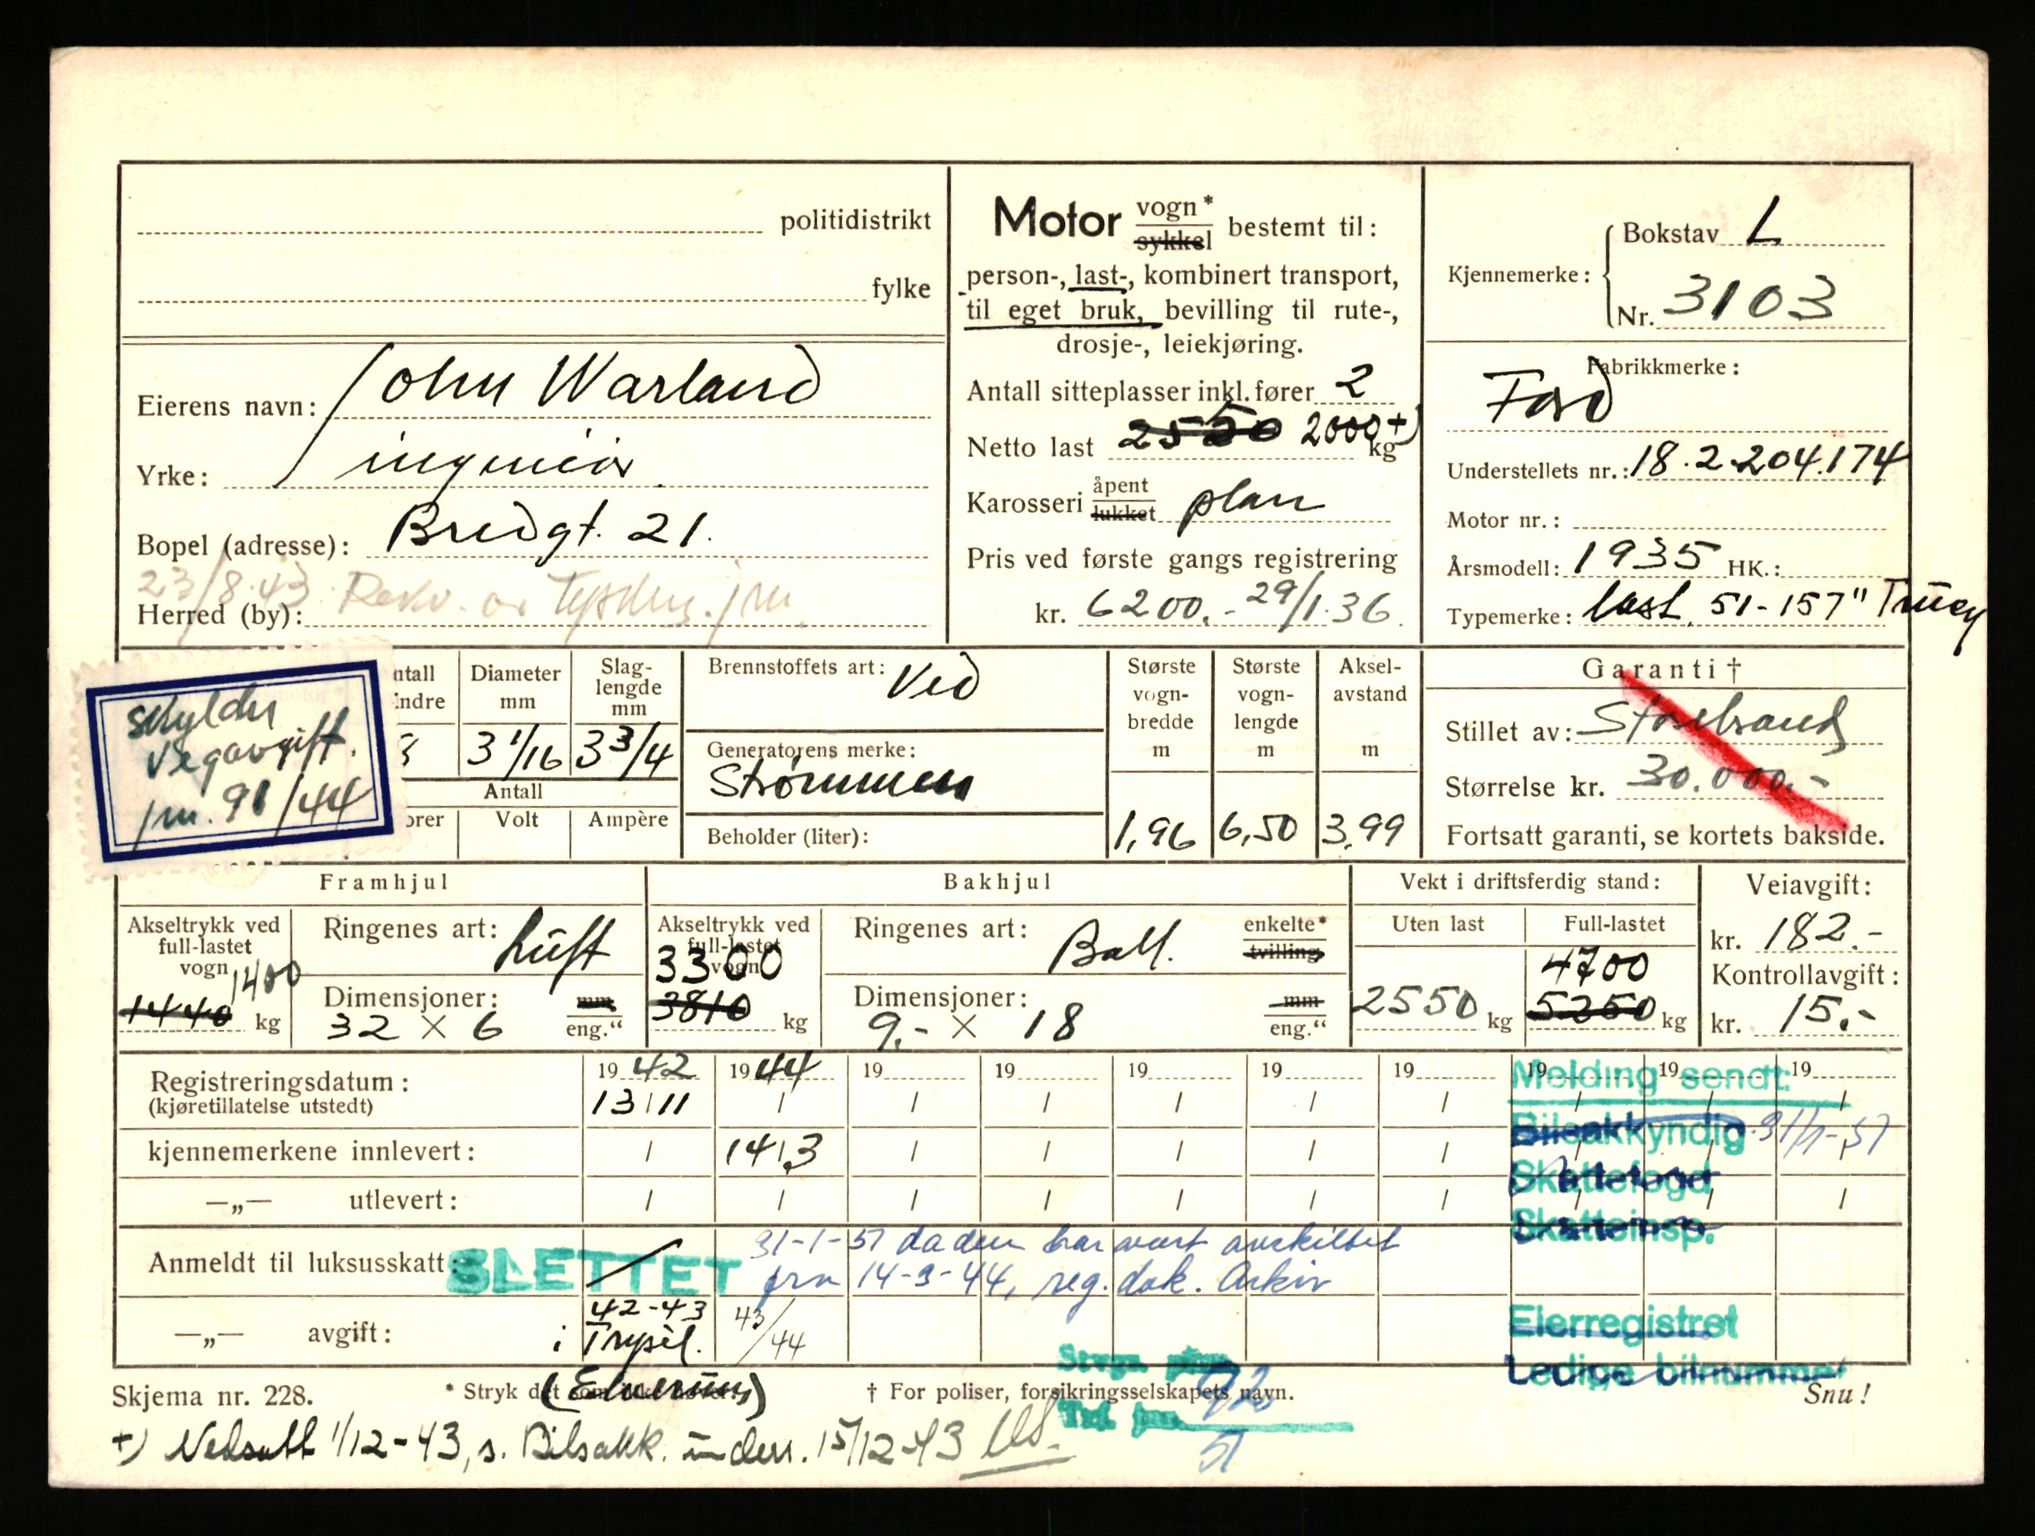 politidistrikt
fylke
Eierens navn: John Warland
Yrke: ingeniør
Bopel (adresse): Bredgt. 21.
23/8.43 Rekv. av Tyskerne. j nr.
Herred (by):
Motor vogn* sykkel bestemt til:
person-, last-, kombinert transport,
til eget bruk, bevilling til rute-,
drosje-, leiekjøring.
Antall sitteplasser inkl. fører 2
Netto last 2550 2000 +) kg
Karosseri åpent lukket plan
Pris ved første gangs registrering
kr. 6200.- 29/1.36.
Kjennemerke: Bokstav L
Nr. 3103
Fabrikkmerke:
Ford
Understellets nr.: 18.2.204.174
Motor nr.:
Årsmodell: 1935 HK.:
Typemerke: last. 51-157"
skylder
vegavgift.
j nr. 91/44
Diameter mm
3 1/16
Slag-lengde mm
3 3/4
Antall
Volt
Ampère
Brennstoffets art: Ved
Generatorens merke:
Strømmen
Beholder (liter):
Største vogn-bredde m
1,96
Største vogn-lengde m
6,50
Aksel-avstand m
3,99
Garanti †
Stillet av: Storebrand
Størrelse kr. 30.000.-
Fortsatt garanti, se kortets bakside.
Framhjul
Akseltrykk ved full-lastet vogn
1400
1440 kg
Ringenes art: Luft
Dimensjoner: mm
32 × 6 eng."
Bakhjul
Akseltrykk ved full-lastet vogn
3300
3810 kg
Ringenes art: Ball. enkelte* tvilling
Dimensjoner: mm
9.- × 18 eng."
Vekt i driftsferdig stand:
Uten last
2550 kg
Full-lastet
4700
5250 kg
Veiavgift:
kr. 182.-
Kontrollavgift:
kr. 15.-
Registreringsdatum: 19 42 19 44 19 19 19 19 19 19 19 19
(kjøretillatelse utstedt) 13/11
kjennemerkene innlevert: 14/3
—„— utlevert:
Melding sendt:
Bilsakkyndig 31/1-51
Skattefogd
Skatteinsp.
Eierregistret
Ledige bilnummer
Anmeldt til luksusskatt:
SLETTET 31-1-51 da den har vært avskiltet
fra 14-3-44, reg. dok. Arkiv
—„— avgift: 42-43 43/44
i Trysil.
(Elverum)
Skjema nr. 228.
* Stryk det
† For poliser, forsikringsselskapets navn.
Snu!
92
51
+) Nedsatt 1/12-43, s. Bilsakk. underr. 15/12-43